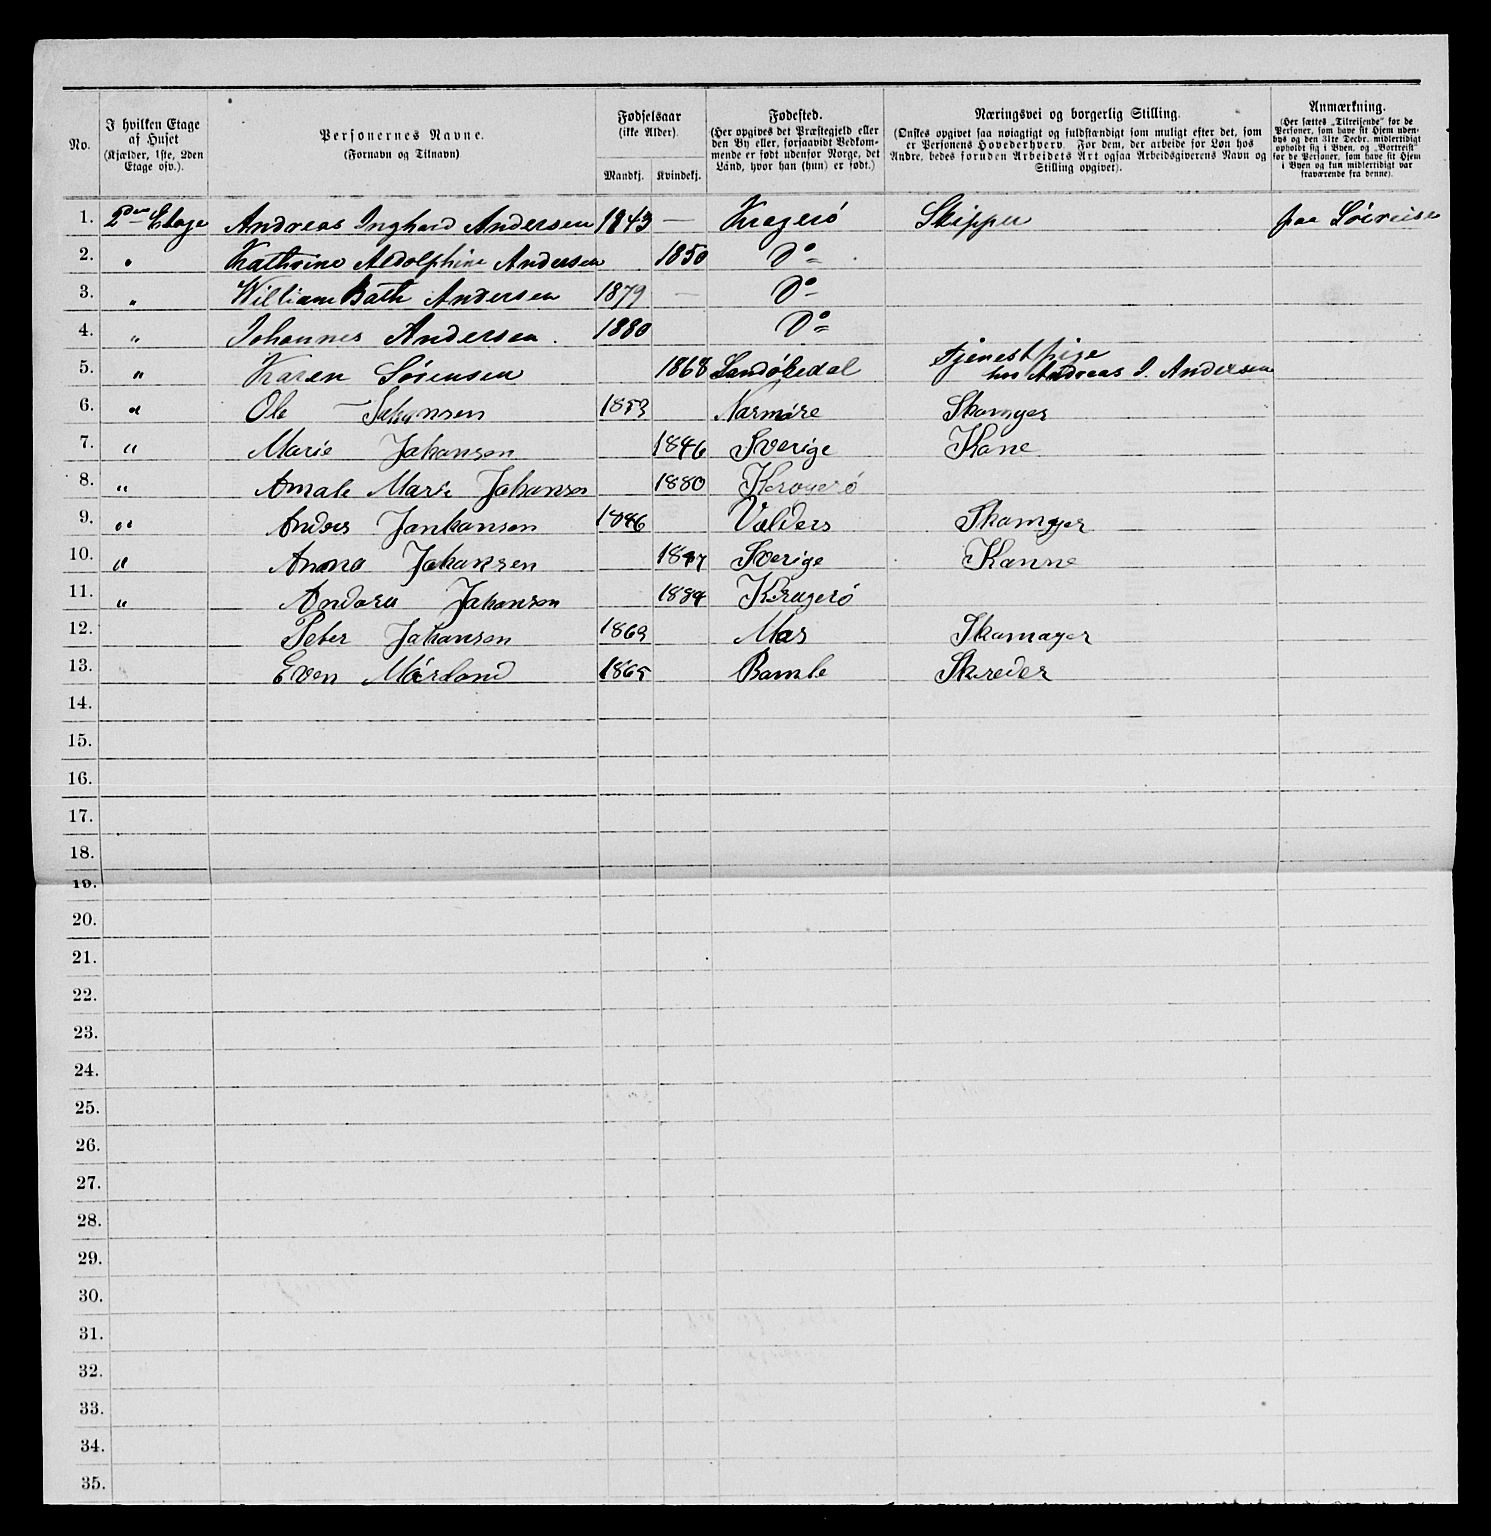 No.
I hvilken Etage
af Huset
(Kjælder, 1ste, 2den
Etage osv.).
Personernes Navne.
(Fornavn og Tilnavn)
Fødselsaar
(ikke Alder).
Mandkj. Kvindekj.
Fødested.
(Her opgives det Præstegjeld eller
den By eller, forsaavidt Vedkom-
mende er født udenfor Norge, det
Land, hvor han (hun) er født.)
Næringsvei og borgerlig Stilling.
(Ønskes opgivet saa nøiagtigt og fuldstændigt som muligt efter det, som
er Personens Hovederhverv. For dem, der arbeide for Løn hos
Andre, bedes foruden Arbeidets Art ogsaa Arbeidsgiverens Navn og
Stilling opgivet).
Anmærkning.
(Her sættes „Tilreisende" for de
Personer, som have sit Hjem uden-
bys og den 31te Decbr. midlertidigt
opholdt sig i Byen, og „Bortreist"
for de Personer, som have sit Hjem
i Byen og kun midlertidigt var
fraværende fra denne).
1. 2den Etage Andreas Inghard Andersen 1843 — Kragerö Skipper paa Söireise
2. " Kathrine Aldolphine Andersen 1850 Do
3. " William Bath Andersen 1879 — Do
4. " Johannes Andersen. 1880 Do
5. " Karen Sörensen 1868 Sandökedal Tjenestpige
hos Andreas I. Andersen
6. " Ole Johansen 1853 Narmöre Skomger
7. " Marie Johansen 1846 Sverige Kone
8. " Amale Marie Johansen 1880 Kerogerö
9. " Anders Jonhansen 1846 Valders Skomgjer
10. " Anna Johansen 1847 Sverige Konne
11. " Andora Johanson 1884 Kragerö
12. Peter Johansen 1869 Mos Skomager
13. Even Mörland 1865 Bamle Skreder
14.
15.
16.
17.
18.
19.
20.
21.
22.
23.
24.
25.
26.
27.
28.
29.
30.
31.
32.
33.
34.
35.